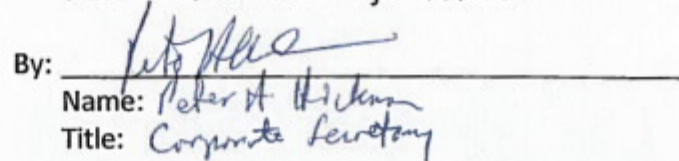 By:
Name: Peter A Hickman
Title: Corporate Secretary